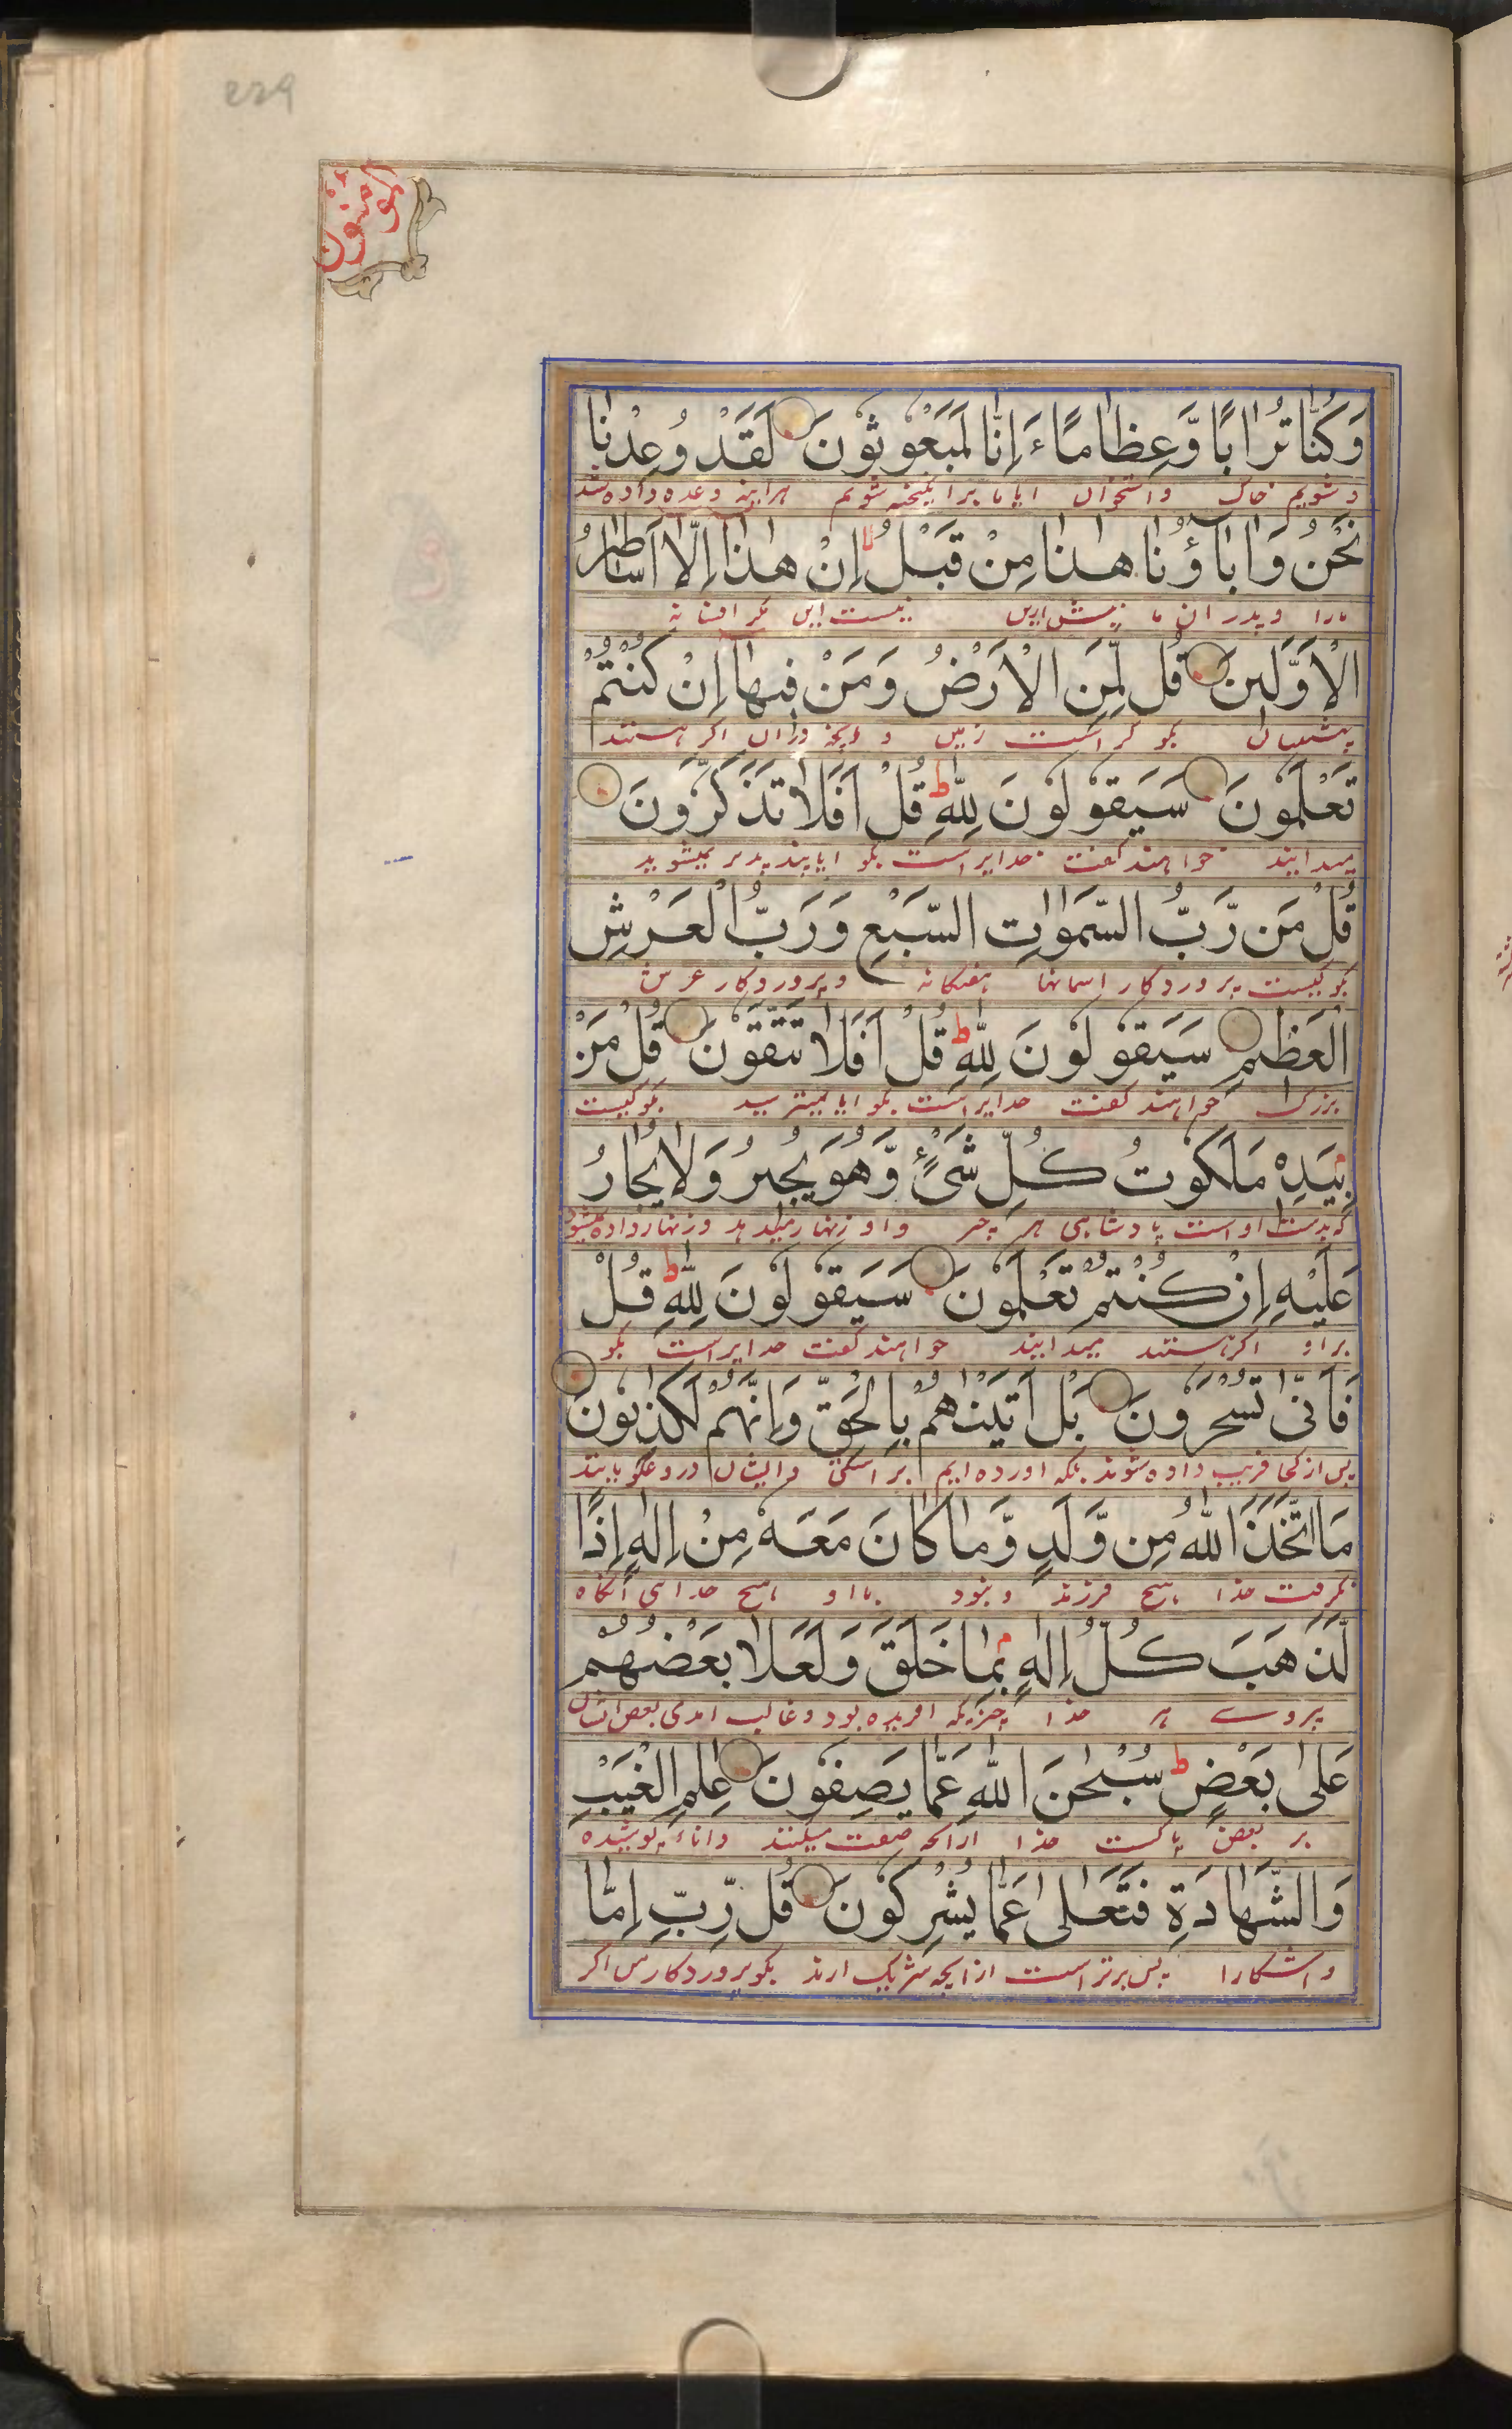 229
المؤمنون
وَكُنَّا تُرَابًا وَّعِظَامًا ءَاِنَّا لَمَبْعُوْثُوْنَ لَقَدْ وُعِدْنَا
و شویم خاک و استخوان ایا ما برانگیخته شویم هراینه وعده داده شد
نَحْنُ وَاٰبَآؤُنَا هٰذَا مِنْ قَبْلُ اِنْ هٰذَآ اِلَّآ اَسَاطِيْرُ
مارا و پدران ما پیش ازین نیست این مکر افسانه
الْاَوَّلِيْنَ قُلْ لِّمَنِ الْاَرْضُ وَمَنْ فِيْهَآ اِنْ كُنْتُمْ
پیشینیان بکو کراست زمین و انچه دران اکر هستند
تَعْلَمُوْنَ سَيَقُوْلُوْنَ لِلّٰهِ ط قُلْ اَفَلَا تَذَكَّرُوْنَ
میدانید خواهند کفت خدایراست بکو ایا پند پذیر نمیشوید
قُلْ مَنْ رَّبُّ السَّمٰوٰتِ السَّبْعِ وَرَبُّ الْعَرْشِ
بکو کیست پروردکار اسمانها هفتکانه و پروردکار عرش
الْعَظِيْمِ سَيَقُوْلُوْنَ لِلّٰهِ ط قُلْ اَفَلَا تَتَّقُوْنَ قُلْ مَنْ
بزرک خواهند کفت خدایراست بکو ایا نمیترسید بکو کیست
بِيَدِهٖ مَلَكُوْتُ كُلِّ شَيْءٍ وَّهُوَ يُجِيْرُ وَلَا يُجَارُ
که بدست اوست پادشاهی هر چیز و او زنهار میدهد و زنهار داده نمیشود
عَلَيْهِ اِنْ كُنْتُمْ تَعْلَمُوْنَ سَيَقُوْلُوْنَ لِلّٰهِ ط قُلْ
بر او اکر هستند میدانید خواهند کفت خدایراست بکو
فَاَنّٰى تُسْحَرُوْنَ بَلْ اَتَيْنٰهُمْ بِالْحَقِّ وَاِنَّهُمْ لَكٰذِبُوْنَ
پس از کجا فریب داده شوند بلکه اورده ایم براستی و ایشان دروغکویانند
مَا اتَّخَذَ اللّٰهُ مِنْ وَّلَدٍ وَّمَا كَانَ مَعَهٗ مِنْ اِلٰهٍ اِذًا
نکرفت خدا هیچ فرزند و نبود با او هیچ خدای انکاه
لَّذَهَبَ كُلُّ اِلٰهٍۢ بِمَا خَلَقَ وَلَعَلَا بَعْضُهُمْ
ببردے هر خدا چیزیکه افریده بود و غالب امدی بعض ایشان
عَلٰى بَعْضٍ ط سُبْحٰنَ اللّٰهِ عَمَّا يَصِفُوْنَ عٰلِمِ الْغَيْبِ
بر بعض پاکست خدا ازانچه صفت میکنند داناء پوشیده
وَالشَّهَادَةِ فَتَعٰلٰى عَمَّا يُشْرِكُوْنَ قُلْ رَّبِّ اِمَّا
و اشکارا پس برتر است ازانچه شریک ارند بکو پروردکار من اکر